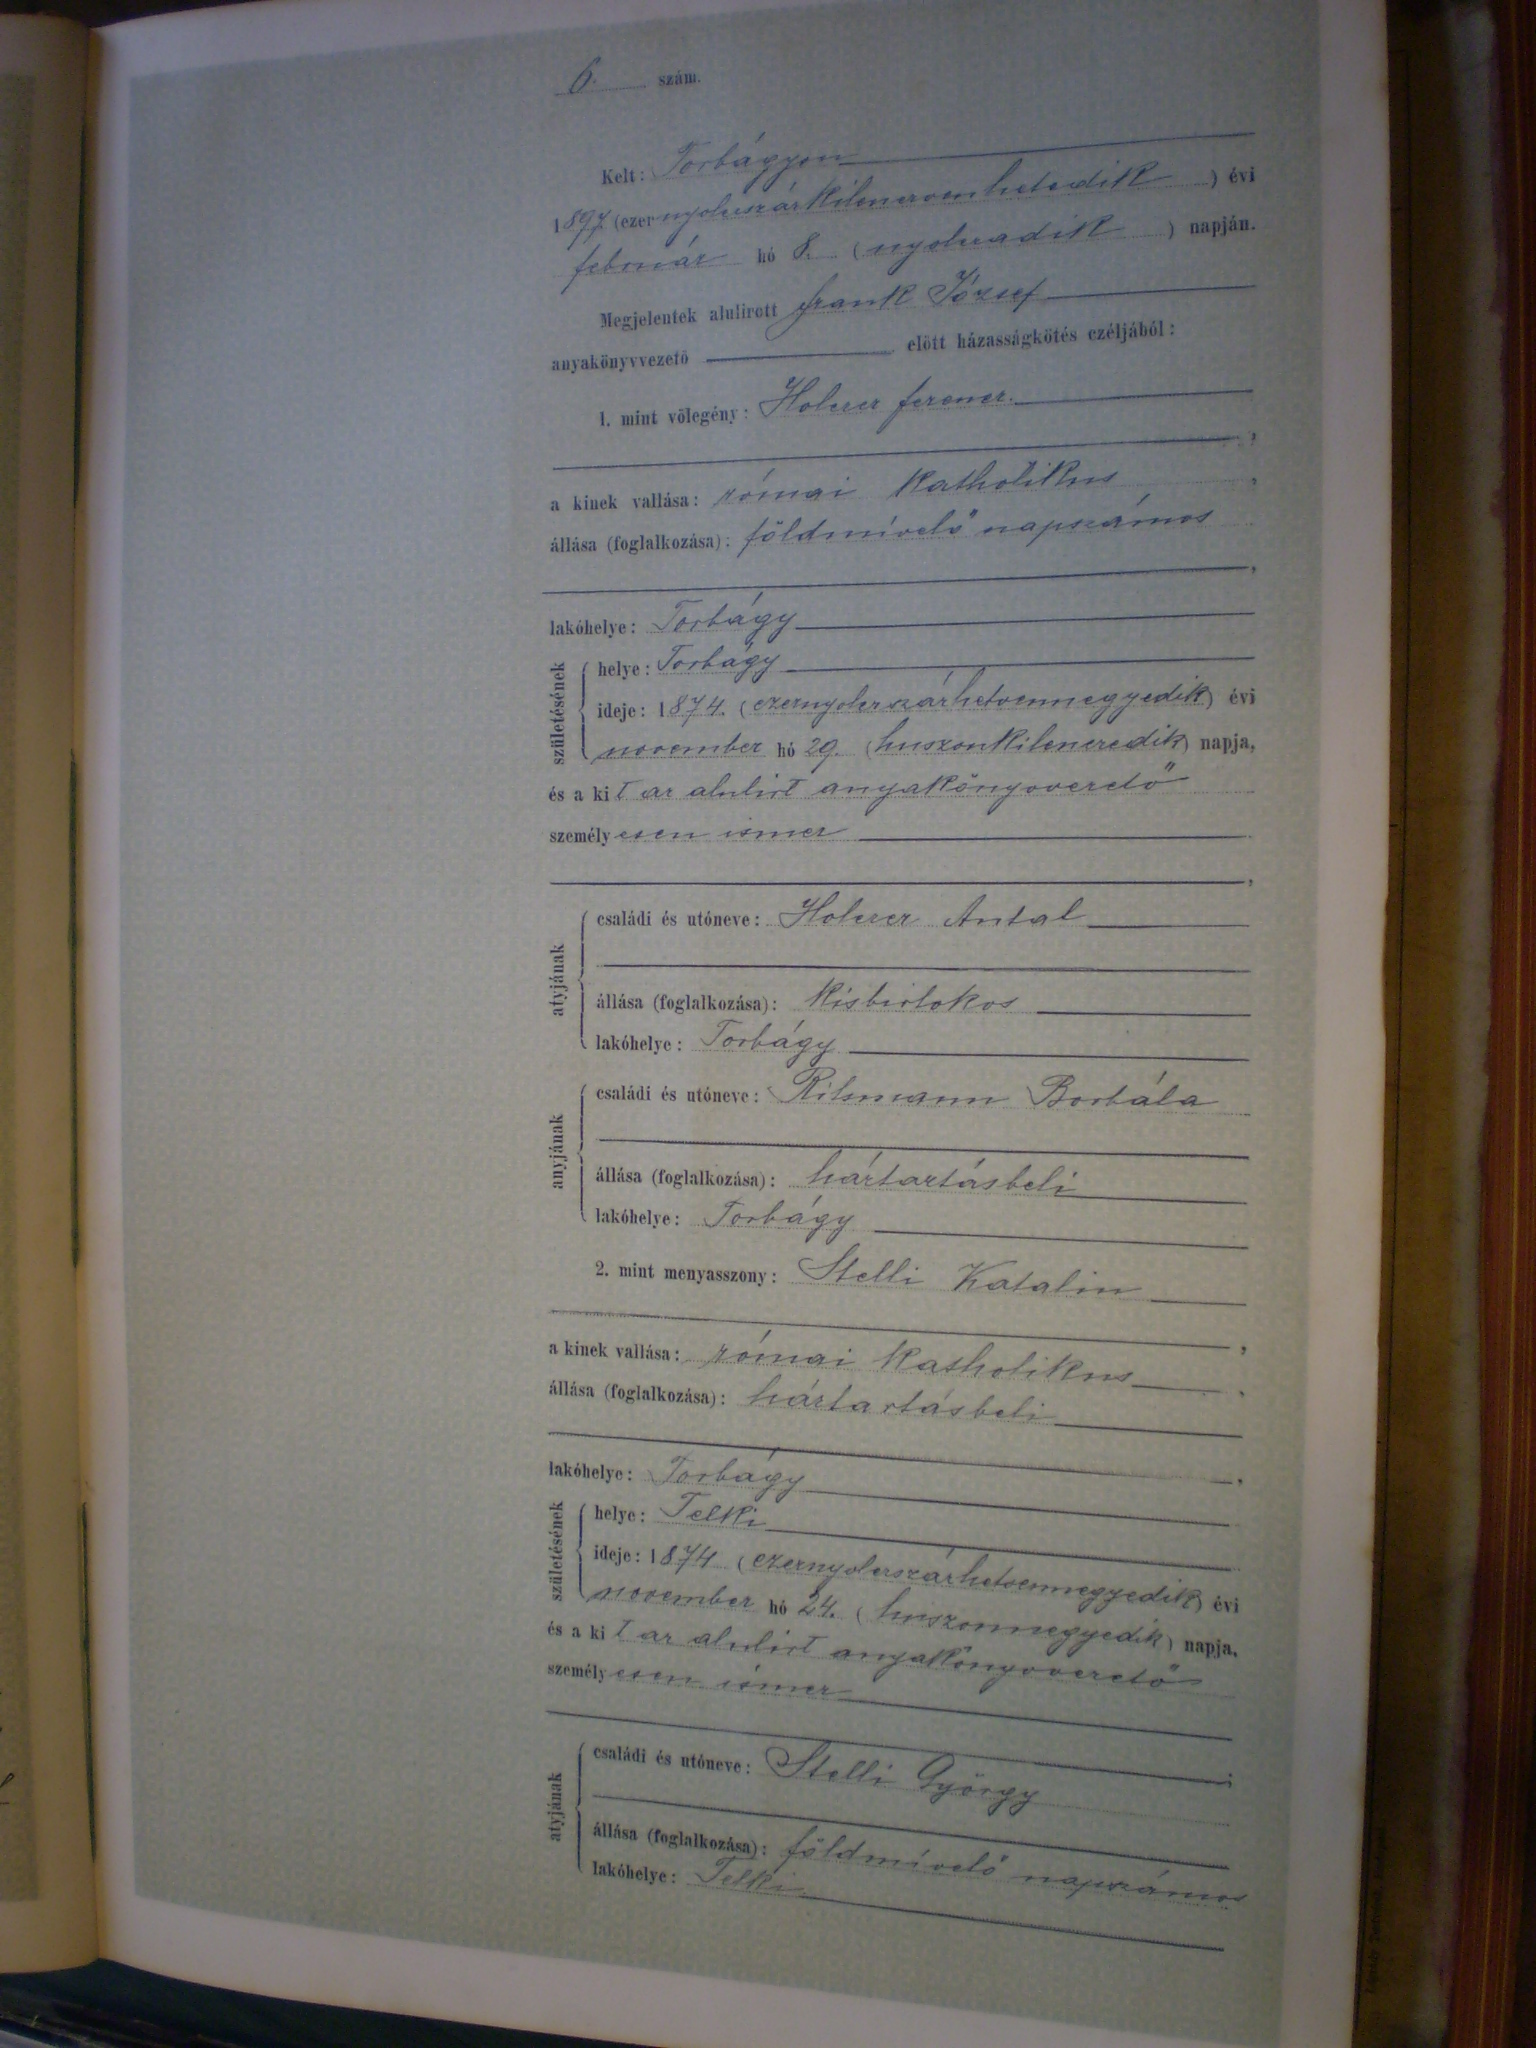 6. szám.
Kelt: Torbágyon
1897 (ezernyolczszázkilenczvenhetedik) évi
február hó 8. (nyolczadik) napján.
Megjelentek alulirott Frank József
anyakönyvvezető előtt házasságkötés czéljából:
1. mint vőlegény: Holczer Ferencz.
a kinek vallása: római katholikus,
állása (foglalkozása): földmívelő napszámos
lakóhelye: Torbágy
születésének
helye: Torbágy
ideje: 1874. (ezernyolczszázhetvennegyedik) évi
november hó 29. (huszonkilenczedik) napja,
és a kit az alulirt anyakönyvvezető
személyesen ismer
atyjának
családi és utóneve: Holczer Antal
állása (foglalkozása): kisbirtokos
lakóhelye: Torbágy
anyjának
családi és utóneve: Borbála
állása (foglalkozása): háztartásbeli
lakóhelye: Torbágy
2. mint menyasszony: Stelli Katalin
a kinek vallása: római katholikus,
állása (foglalkozása): háztartásbeli
lakóhelye: Torbágy
születésének
helye: Telki
ideje: 1874 (ezernyolczszázhetvennegyedik) évi
november hó 24. (huszonnegyedik) napja,
és a kit az alulirt anyakönyvvezető
személyesen ismer
atyjának
családi és utóneve: Stelli György
állása (foglalkozása): földmívelő napszámos
lakóhelye: Telki